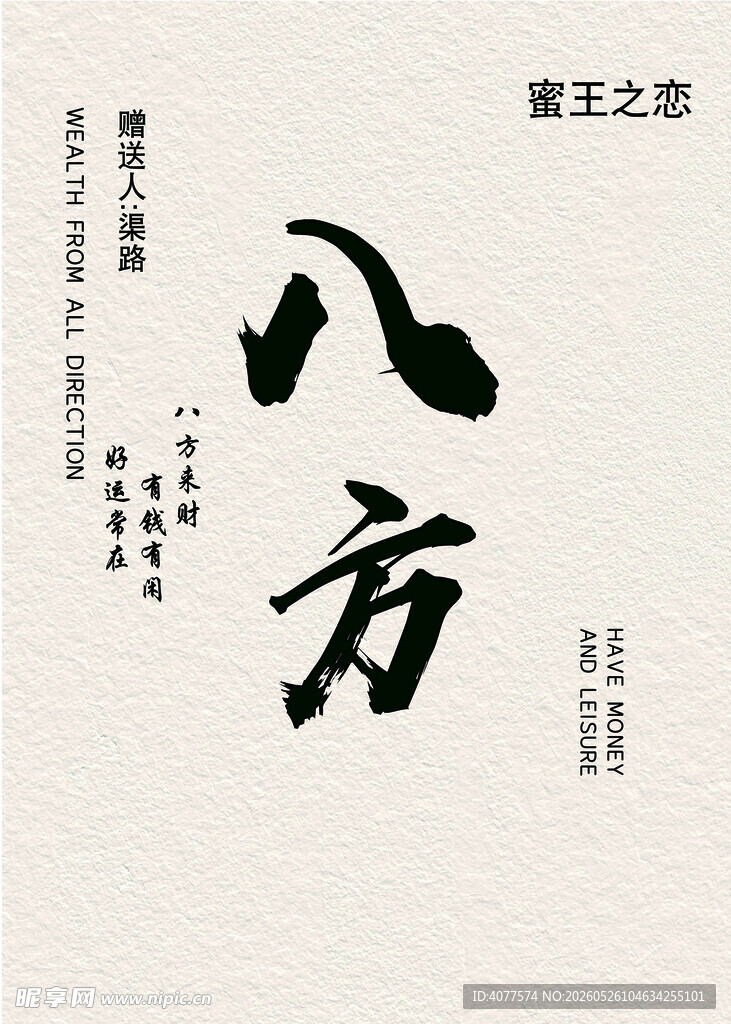 蜜王之恋
赠送人:渠路
WEALTH FROM ALL DIRECTION
八方
八方来财
有钱有闲
好运常在
HAVE MONEY
AND LEISURE
昵享网 www.nipic.cn
ID:4077574 NO:20260526104634255101